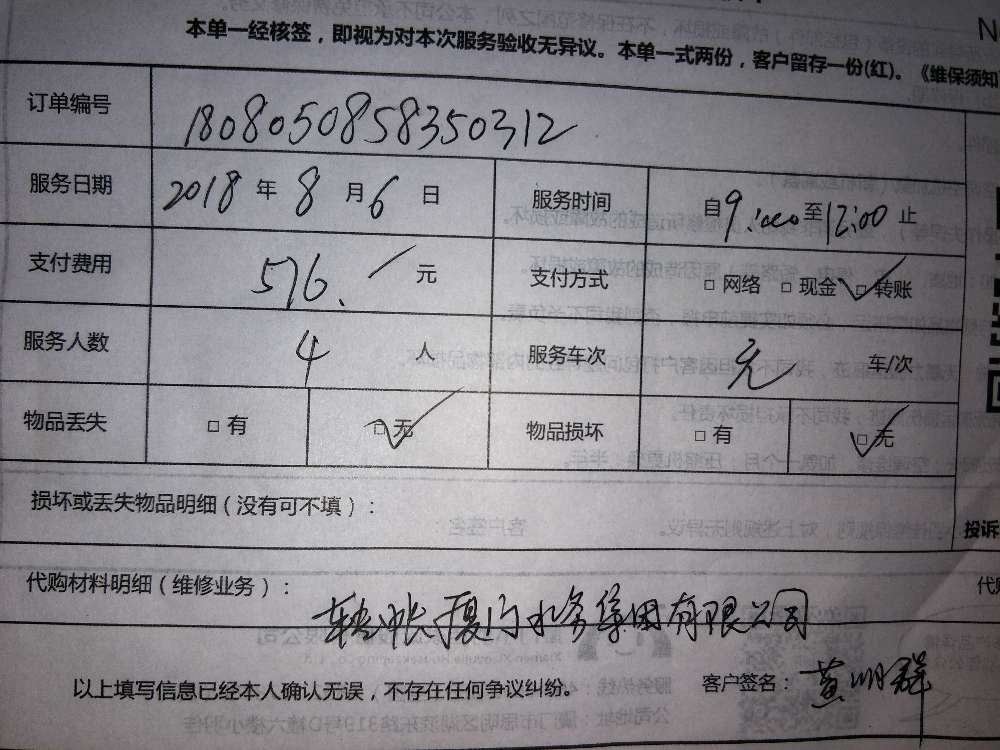 本单一经核签，即视为对本次服务验收无异议。本单一式两份，客户留存一份(红)。《维保须知
订单编号 1808050858350312
服务日期 2018 年 8 月 6 日 服务时间 自 9:00 至 12:00 止
支付费用 576. 元 支付方式 □ 网络 □ 现金 ☑ 转账
服务人数 4 人 服务车次 无 车/次
物品丢失 □ 有 ☑ 无 物品损坏 □ 有 ☑ 无
损坏或丢失物品明细（没有可不填）：
投诉
代购材料明细（维修业务）：
代购
转账厦门水务集团有限公司
以上填写信息已经本人确认无误，不存在任何争议纠纷。 客户签名：黄明群